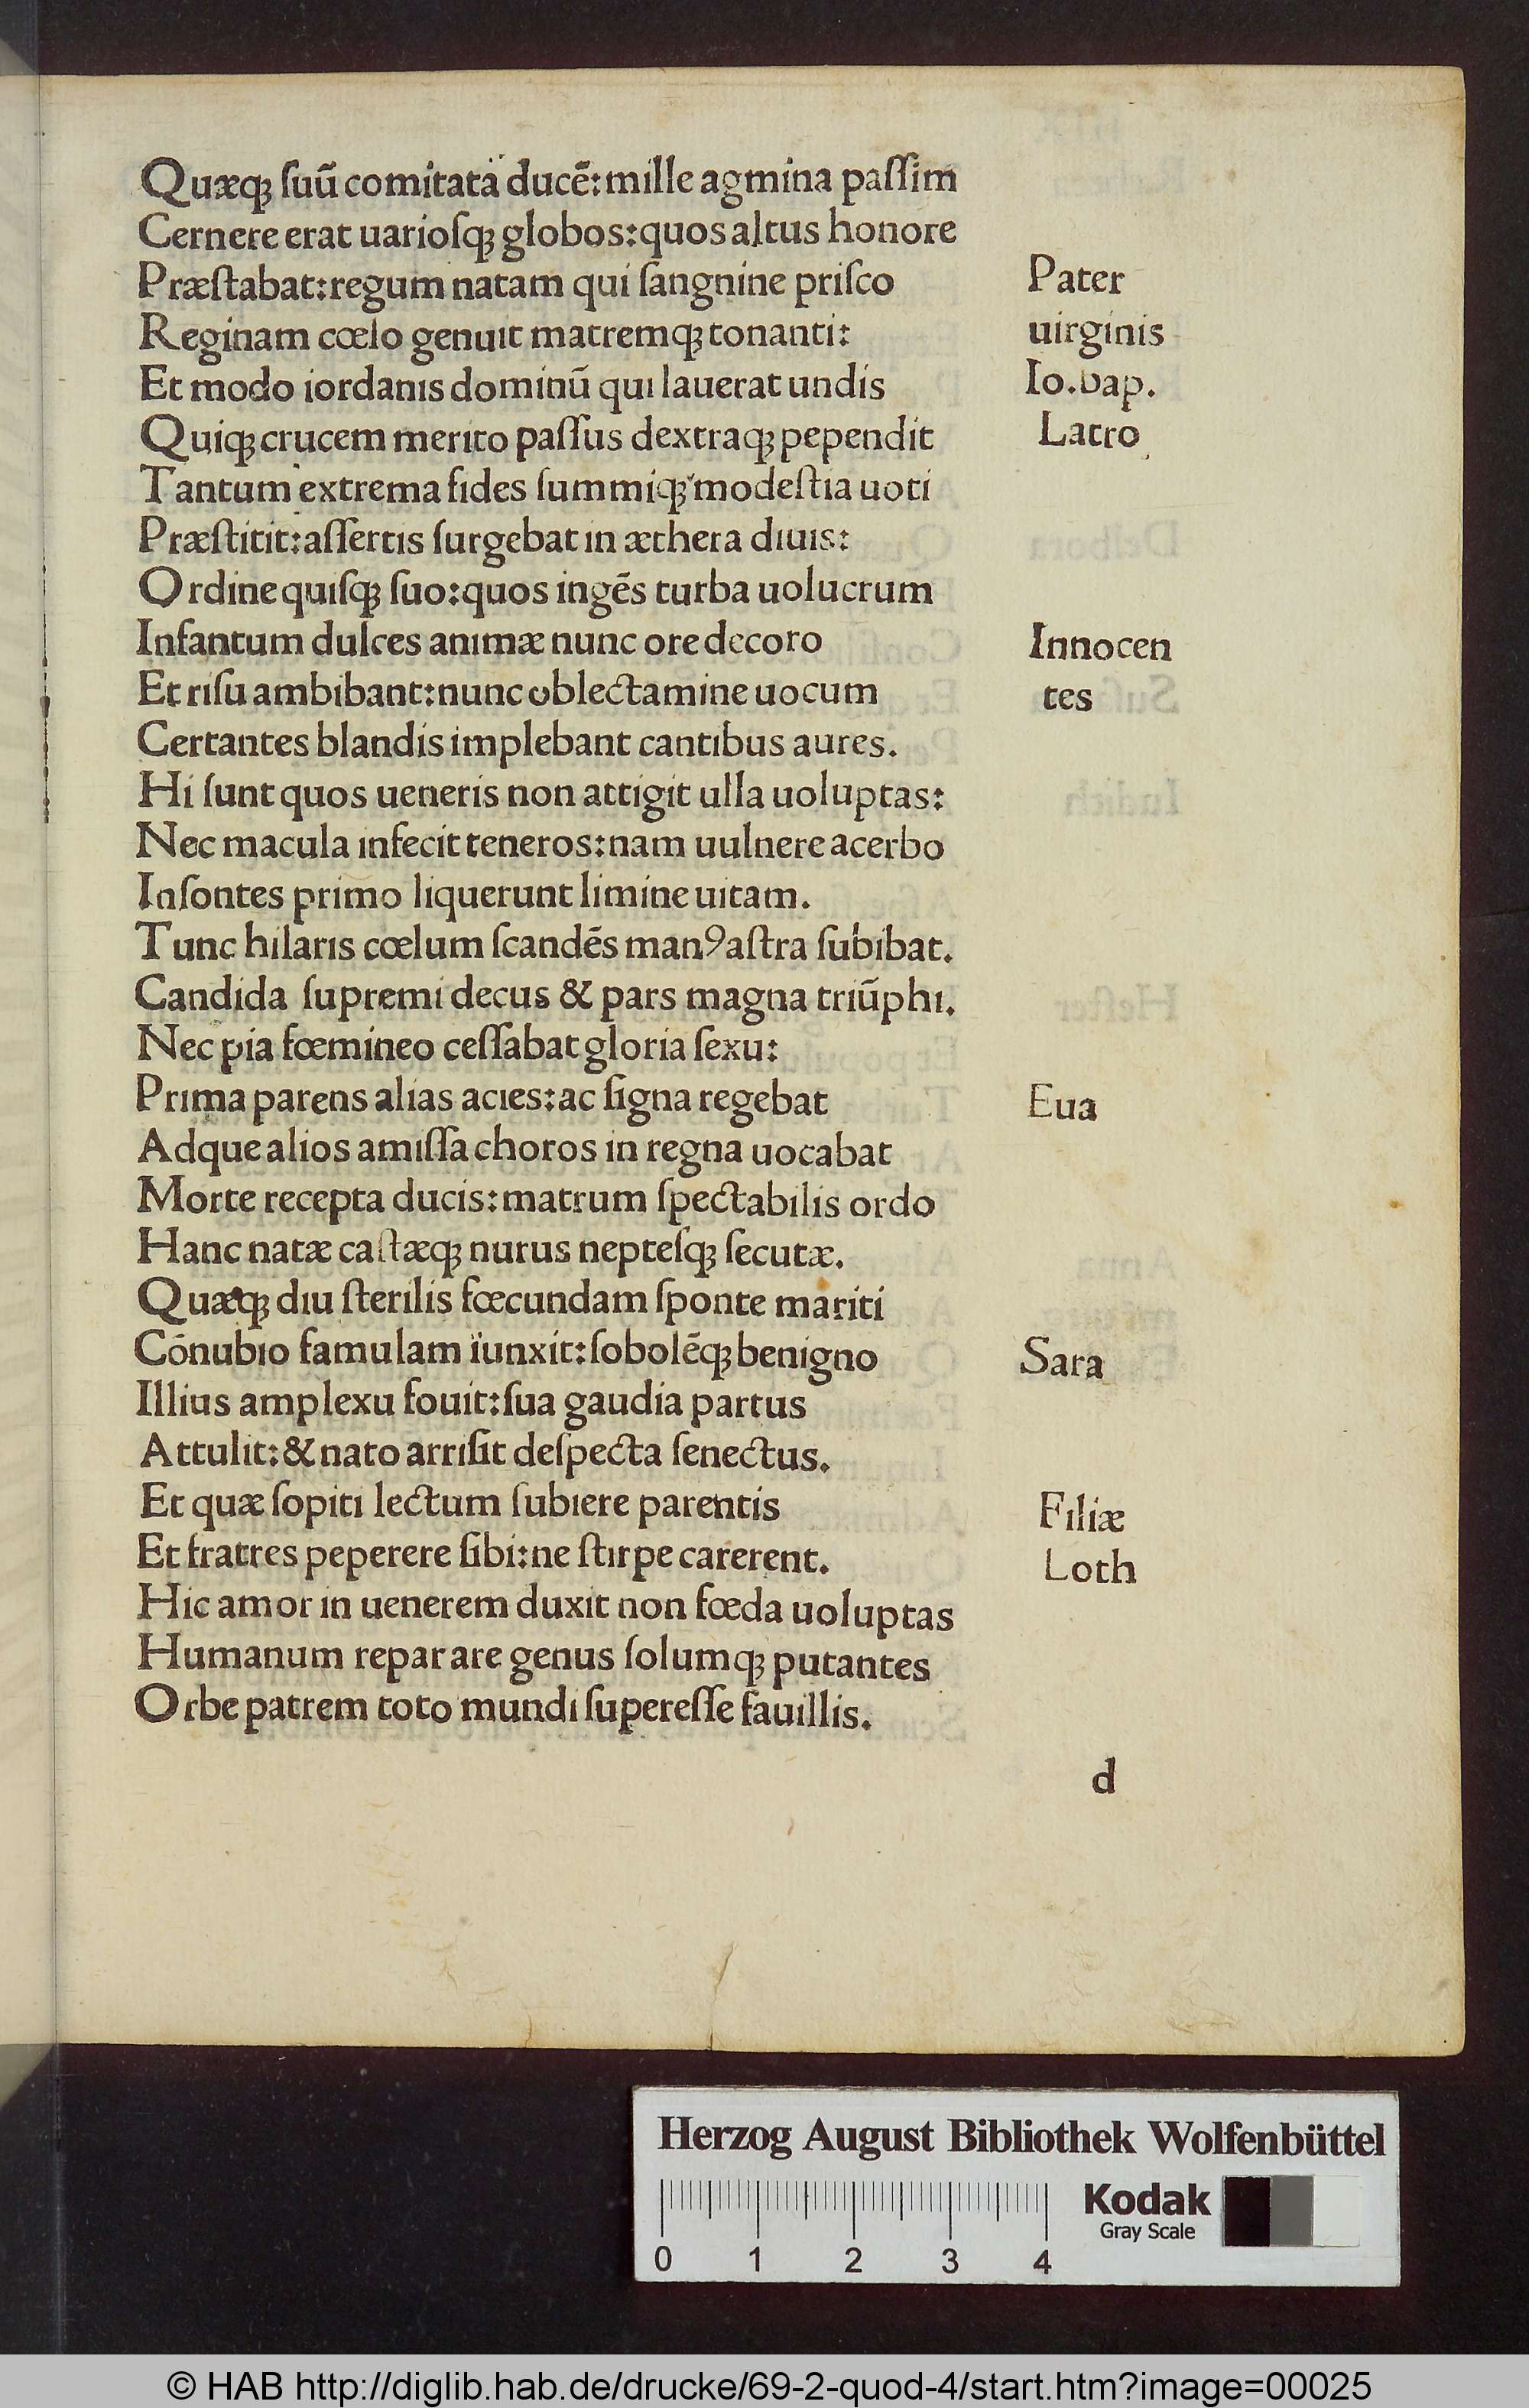 Quæqꝫ ſuū comitata ducē: mille agmina paſſim
Cernere erat uarioſqꝫ globos: quos altus honore
Præſtabat: regum natam qui ſangnine priſco
Pater
Reginam cœlo genuit matremqꝫ tonanti:
uirginis
Et modo iordanis dominū qui lauerat undis
Io.bap.
Quiqꝫ crucem merito paſſus dextraqꝫ pependit
Latro
Tantum extrema fides ſummiqꝫ modeſtia uoti
Præſtitit: aſſertis ſurgebat in æthera diuis:
Ordine quiſqꝫ ſuo: quos ingēs turba uolucrum
Infantum dulces animæ nunc ore decoro
Innocen
Et riſu ambibant: nunc oblectamine uocum
tes
Certantes blandis implebant cantibus aures.
Hi ſunt quos ueneris non attigit ulla uoluptas:
Nec macula infecit teneros: nam uulnere acerbo
Inſontes primo liquerunt limine uitam.
Tunc hilaris cœlum ſcandēs manꝰ aſtra ſubibat.
Candida ſupremi decus & pars magna triūphi.
Nec pia fœmineo ceſſabat gloria ſexu:
Prima parens alias acies: ac ſigna regebat
Eua
Adque alios amiſſa choros in regna uocabat
Morte recepta ducis: matrum ſpectabilis ordo
Hanc natæ caſtæqꝫ nurus népteſqꝫ ſecutæ.
Quæqꝫ diu ſterilis fœcundam ſponte mariti
Cōnubio famulam iunxit: ſobolēqꝫ benigno
Sara
Illius amplexu fouit: ſua gaudia partus
Attulit: & nato arriſit deſpecta ſenectus.
Et quæ ſopiti lectum ſubiere parentis
Filiæ
Et fratres peperere ſibi: ne ſtirpe carerent.
Loth
Hic amor in uenerem duxit non fœda uoluptas
Humanum reparare genus ſolumqꝫ putantes
Orbe patrem toto mundi ſupereſſe fauillis.
d
Herzog August Bibliothek Wolfenbüttel
Kodak
Gray Scale
0 1 2 3 4
© HAB http://diglib.hab.de/drucke/69-2-quod-4/start.htm?image=00025